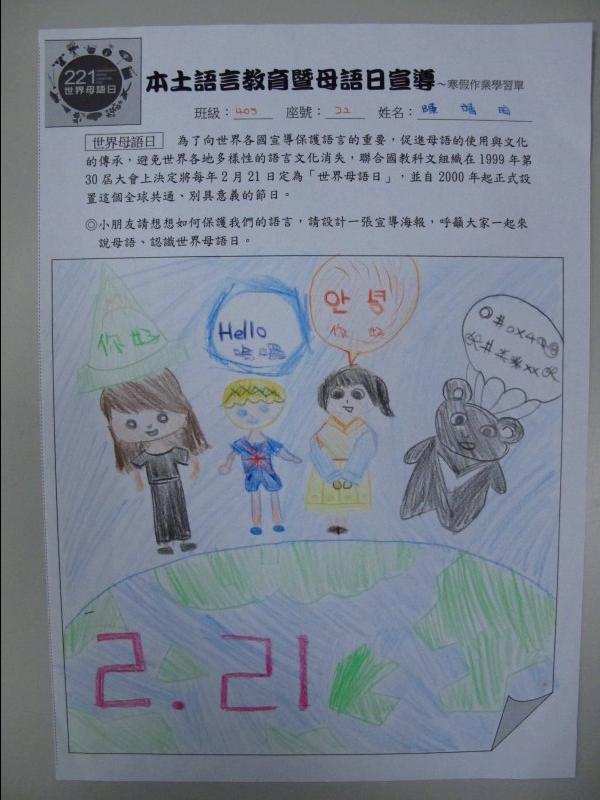 221
世界母語日
本土語言教育暨母語日宣導～寒假作業學習單
班級：403 座號：22 姓名：陳
世界母語日 為了向世界各國宣導保護語言的重要，促進母語的使用與文化
的傳承，避免世界各地多樣性的語言文化消失，聯合國教科文組織在 1999 年第
30 屆大會上決定將每年 2 月 21 日定為「世界母語日」，並自 2000 年起正式設
置這個全球共通、別具意義的節日。
◎小朋友請想想如何保護我們的語言，請設計一張宣導海報，呼籲大家一起來
說母語、認識世界母語日。
你好
Hello
哈囉
안녕
你好
2.21